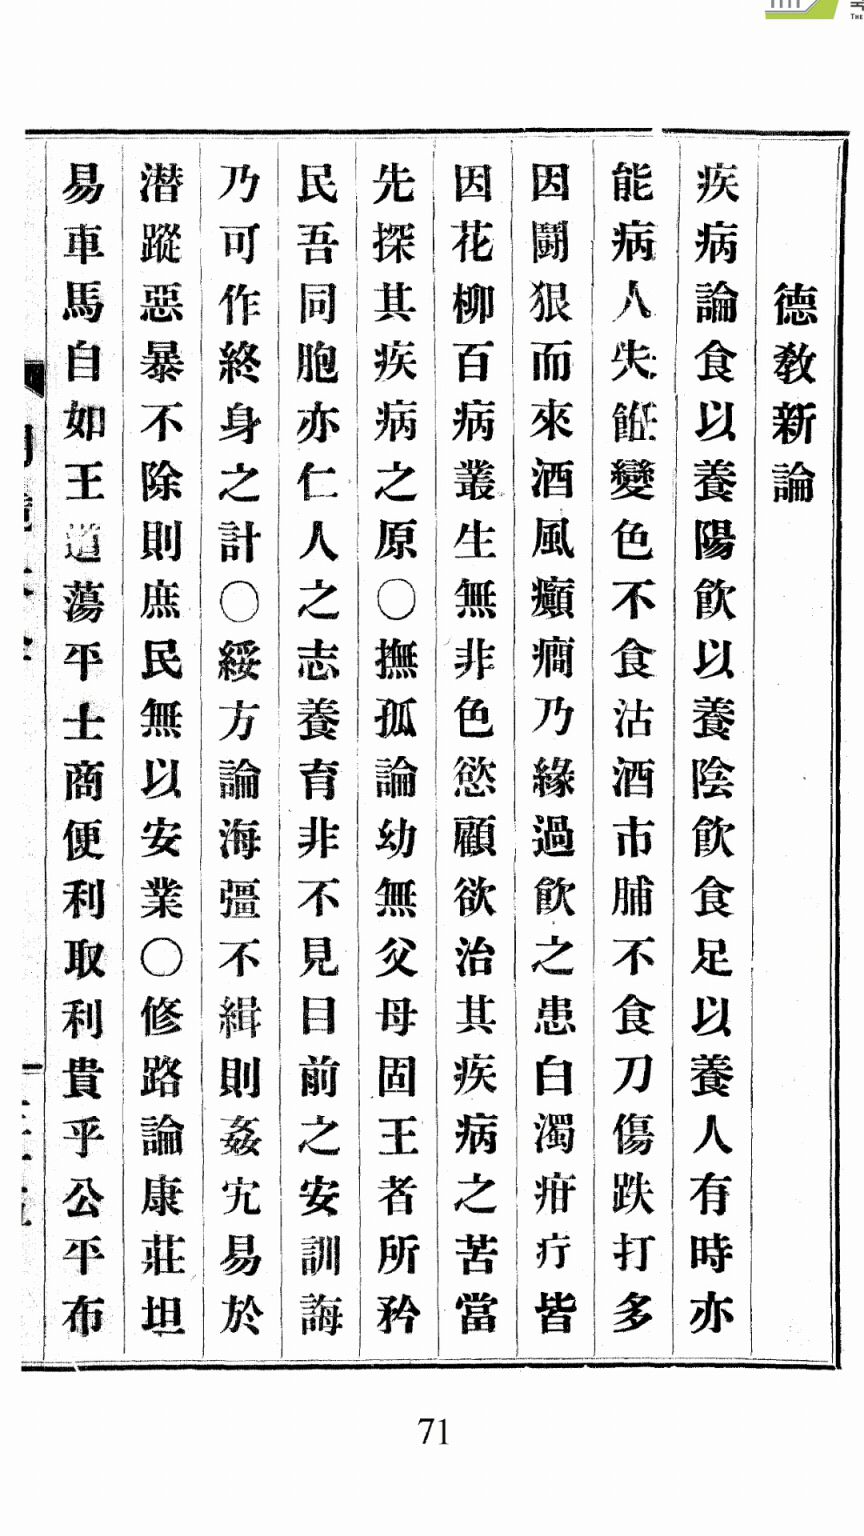 德敎新論
疾病論食以養陽飮以養陰飮食足以養人有時亦
能病人失飪變色不食沽酒市脯不食刀傷跌打多
因鬪狠而來酒風癲癎乃緣過飮之患白濁疳疔皆
因花柳百病叢生無非色慾顧欲治其疾病之苦當
先探其疾病之原○撫孤論幼無父母固王者所矜
民吾同胞亦仁人之志養育非不見目前之安訓誨
乃可作終身之計○綏方論海彊不緝則姦宄易於
潛蹤惡暴不除則庶民無以安業○修路論康莊坦
易車馬自如王道蕩平士商便利取利貴乎公平布
71